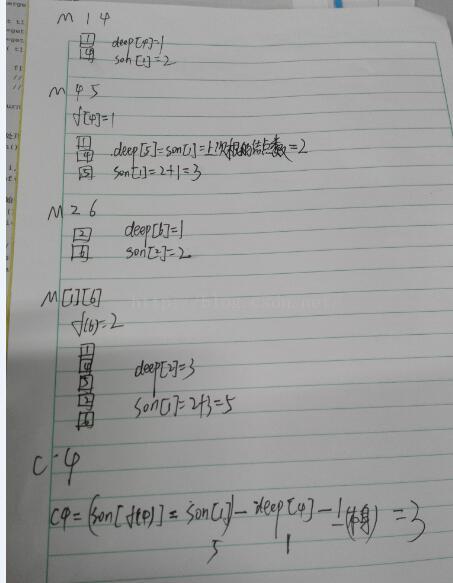 M 1 4
1 deep[4]=1
4 son[1]=2
M 4 5
f[4]=1
1
4 deep[5]=son[1]=上次根的结点数=2
5 son[1]=2+1=3
M 2 6
2 deep[6]=1
6 son[2]=2
M[1][6]
f(6)=2
http://blog.csdn.net/
1
4 deep[2]=3
5
2 son[1]=2+3=5
6
C 4
C4=(son[f(4)]=son[1])-deep[4]-1(本身)=3
5 1